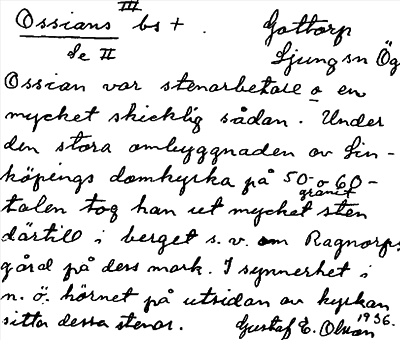 Ossians III bs + . Gottorp
Se II Ljungs sn Ög
Ossian var stenarbetare o en
mycket skicklig sådan. Under
den stora ombyggnaden av Lin-
köpings domkyrka på 50- o 60-
granit
talen tog han ut mycket sten
därtill i berget s.v. om Ragnorps
gård på ders mark. I synnerhet i
n. ö. hörnet på utsidan av kyrkan
sitta dessa stenar. Gustaf E. Olson 1936.